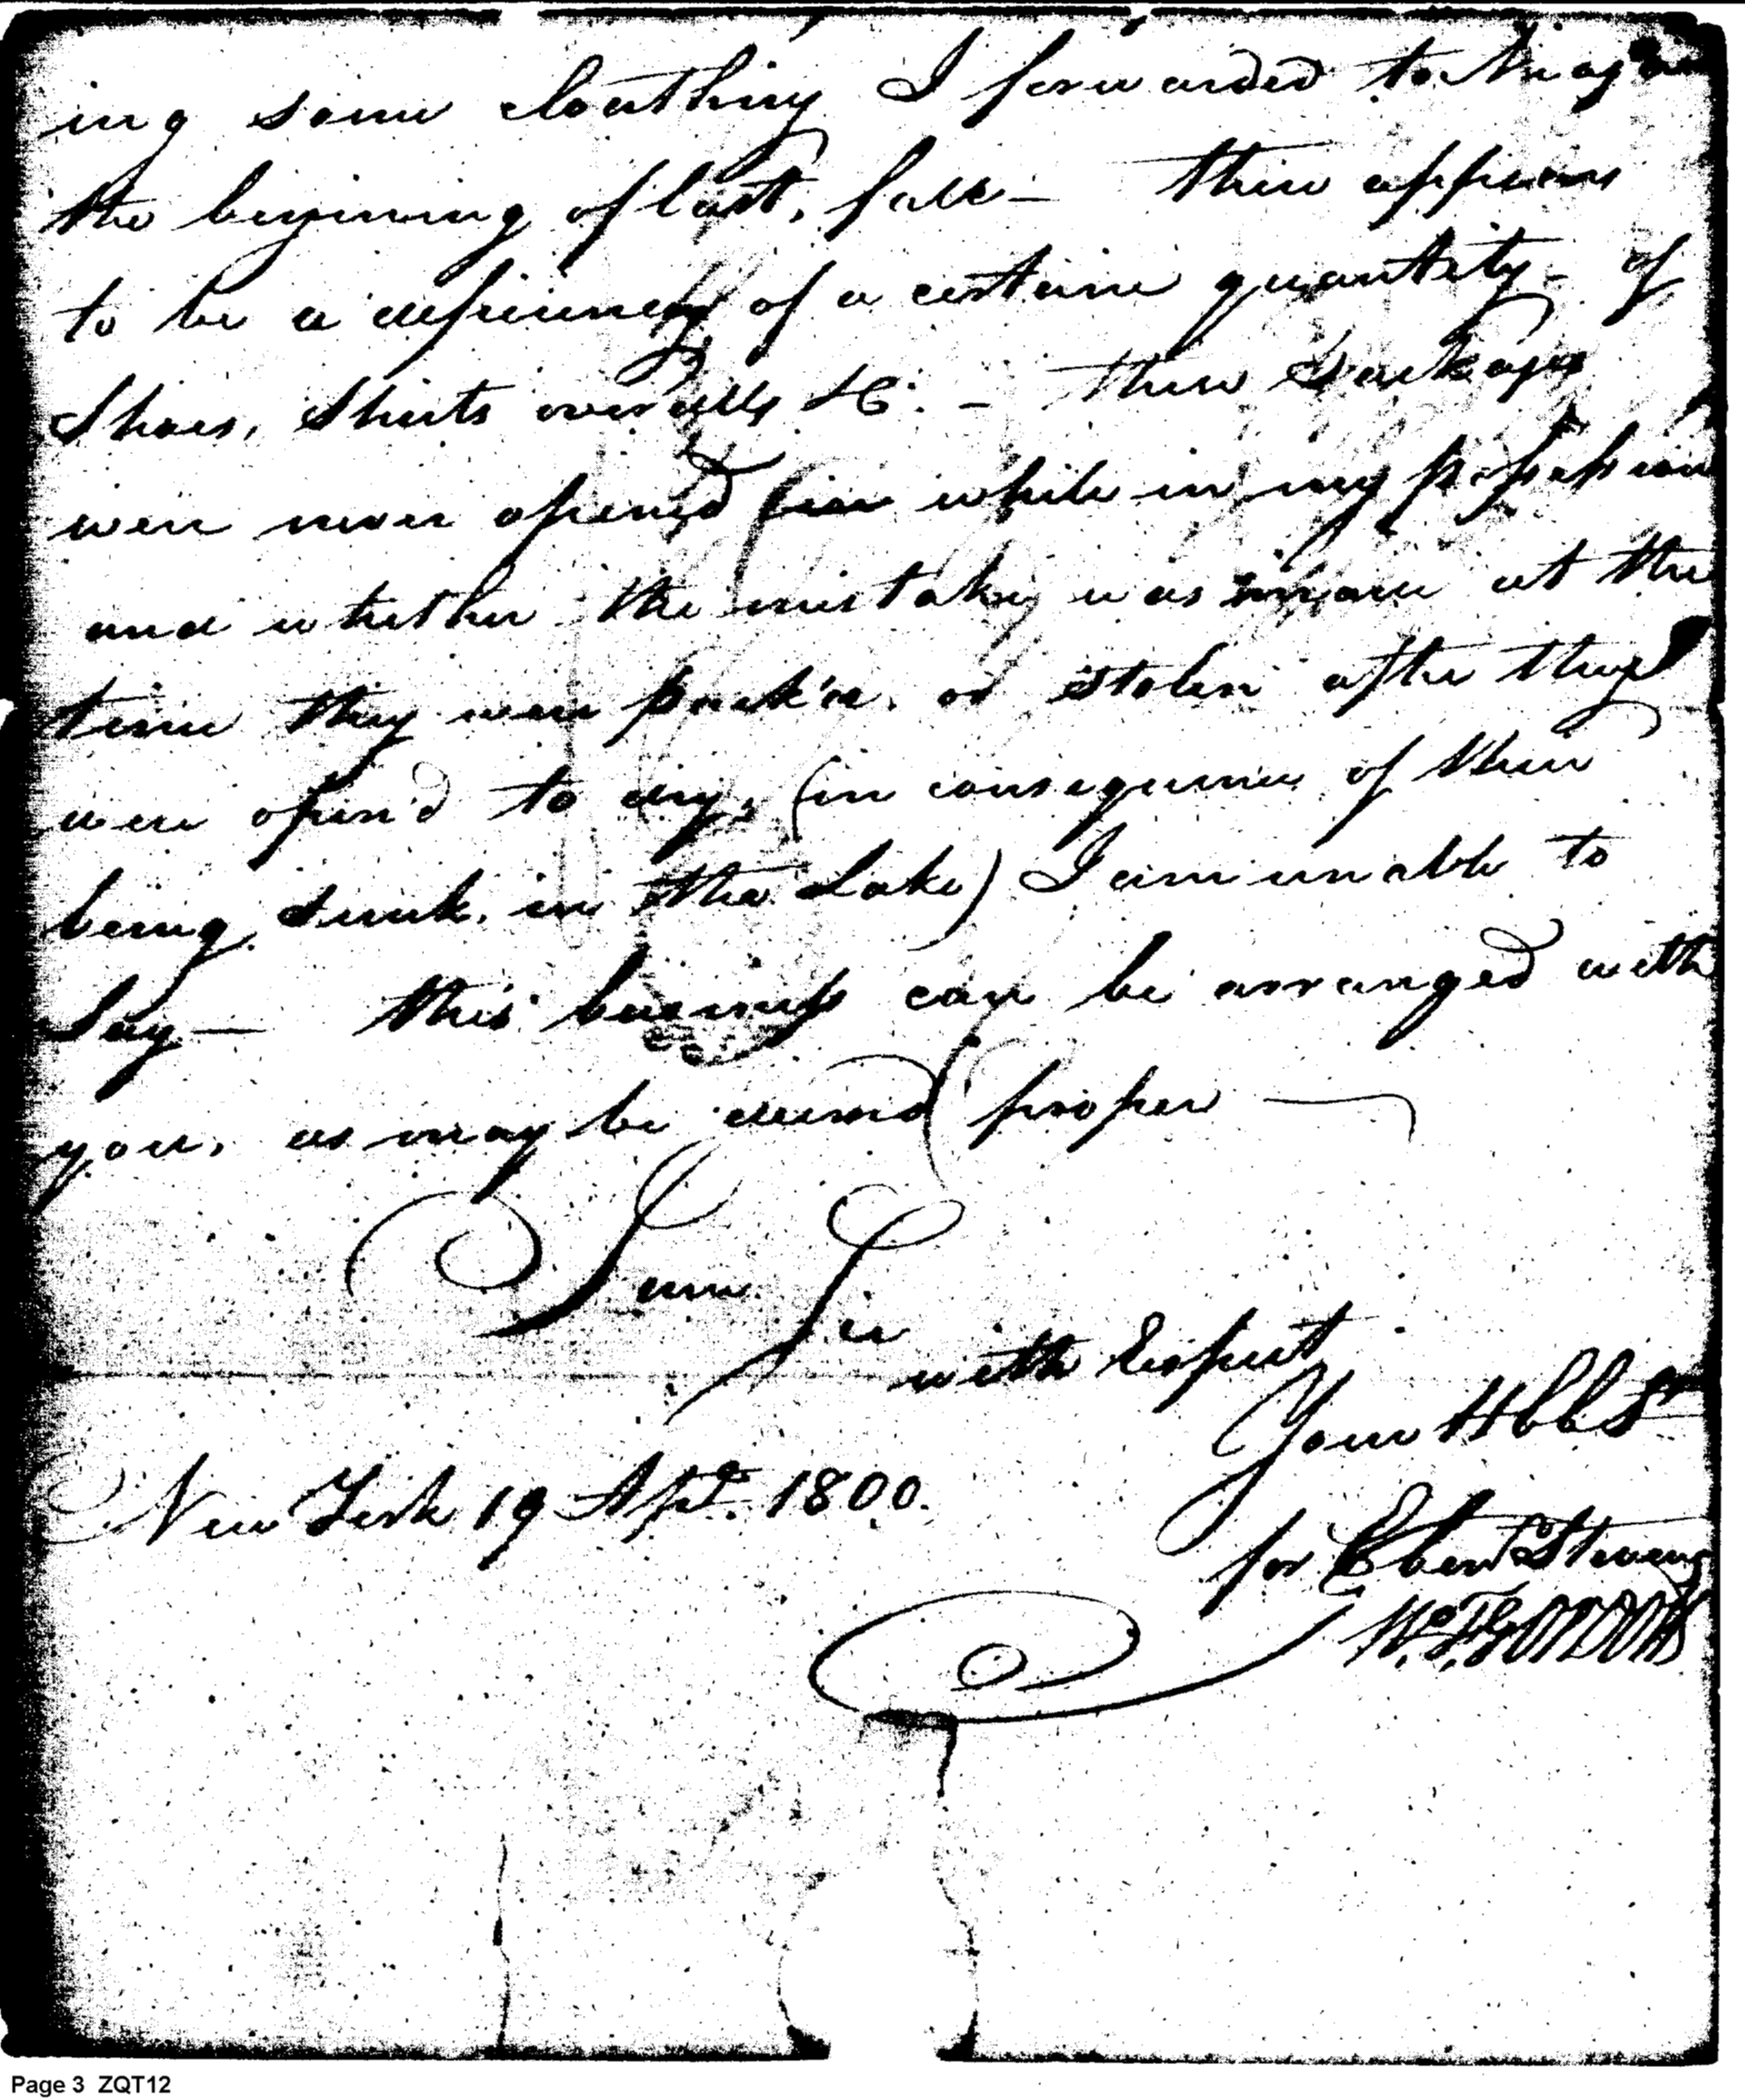 ing some cloathing I forwarded to Niagara
the begining of last, fall — there appears
to be a deficiency of a certain quantity — of
Shoes, Shirts overalls &c. — these Packages
were never opened while in my possession
and whether the mistake was made at the
time they were pack'd, or stolen after they
were open'd to dry, (in consequence of their
being sunk, in the Lake) I am unable to
Say — this business can be arranged with
you, as may be deemd proper —
I am
Sir
with respect
Your Hble St
New York 19 Apl. 1800.
for Eben Stevens
Page 3 ZQT12